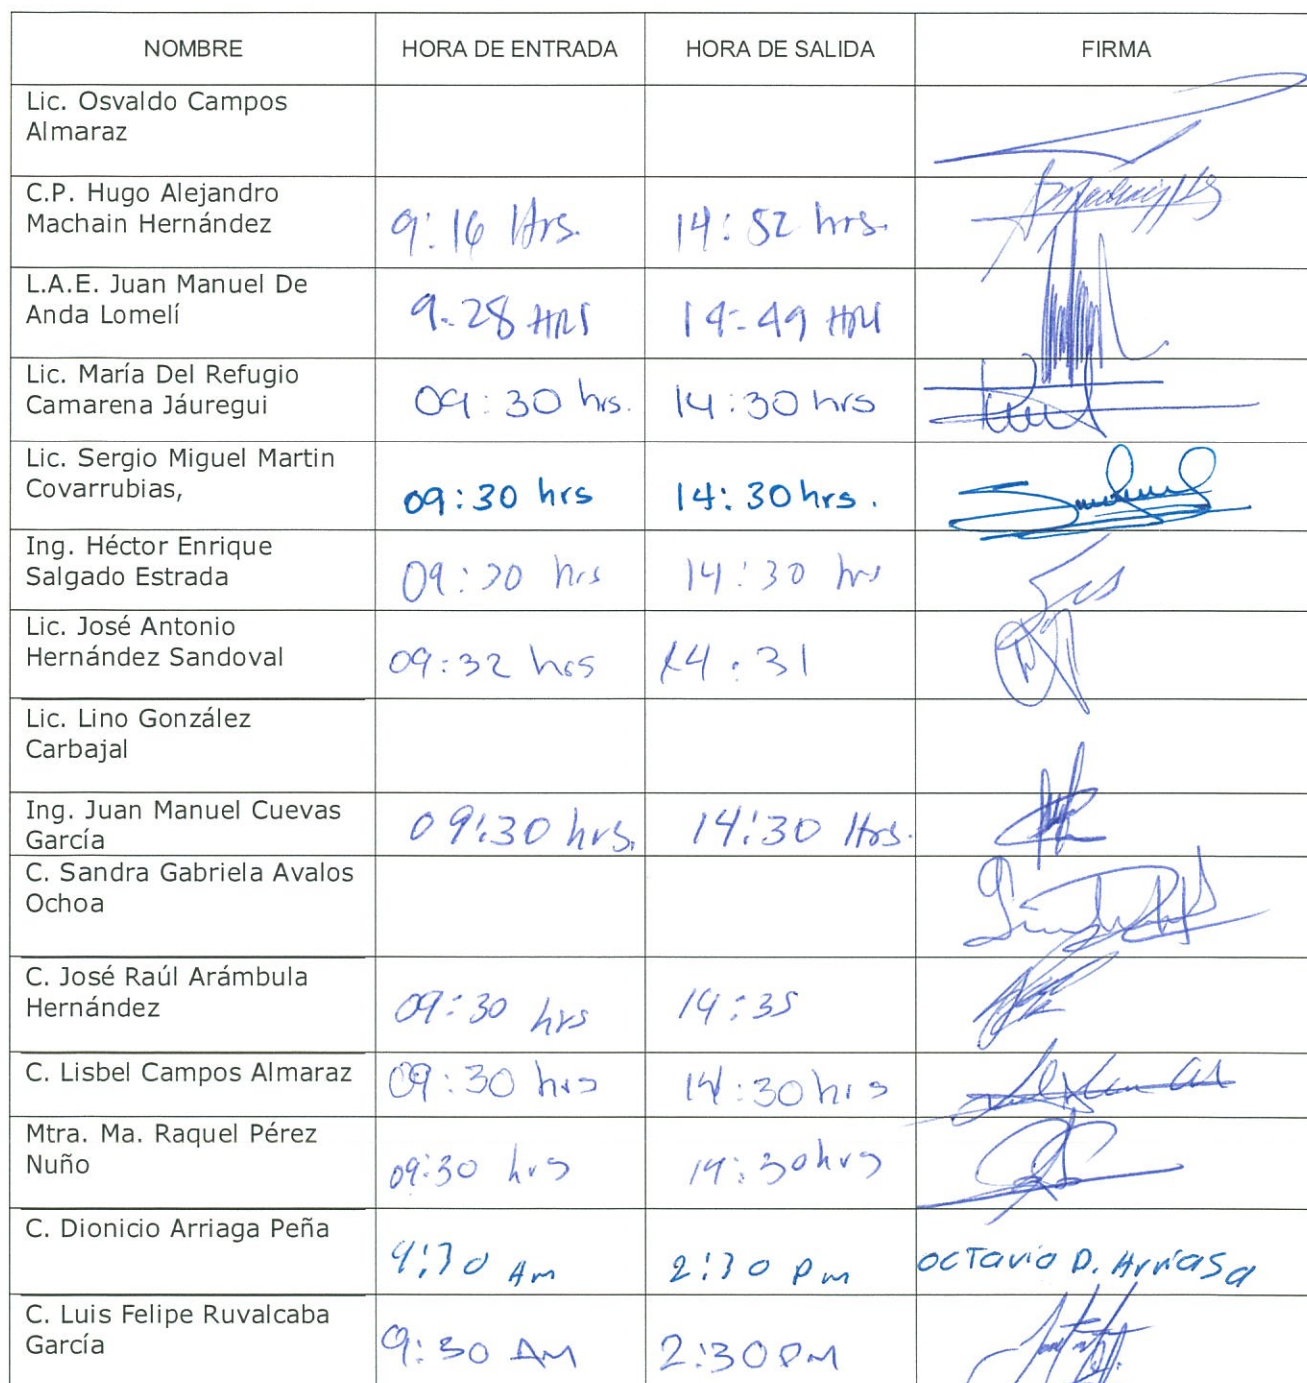 NOMBRE HORA DE ENTRADA HORA DE SALIDA FIRMA
Lic. Osvaldo Campos
Almaraz
C.P. Hugo Alejandro
Machain Hernández 9:16 Hrs. 14:52 hrs.
L.A.E. Juan Manuel De
Anda Lomelí 9-28 HRS 14-49 HRS
Lic. María Del Refugio
Camarena Jáuregui 09:30 hrs. 14:30 hrs
Lic. Sergio Miguel Martin
Covarrubias, 09:30 hrs 14:30 hrs.
Ing. Héctor Enrique
Salgado Estrada 09:30 hrs 14:30 hrs
Lic. José Antonio
Hernández Sandoval 09:32 hrs 14:31
Lic. Lino González
Carbajal
Ing. Juan Manuel Cuevas
García 09:30 hrs. 14:30 Hrs.
C. Sandra Gabriela Avalos
Ochoa
C. José Raúl Arámbula
Hernández 09:30 hrs 14:35
C. Lisbel Campos Almaraz 09:30 hrs 14:30 hrs
Mtra. Ma. Raquel Pérez
Nuño 09:30 hrs 14:30 hrs
C. Dionicio Arriaga Peña
9:30 Am 2:30 Pm Octavio D. Arriaga
C. Luis Felipe Ruvalcaba
García 9:30 AM 2:30 PM